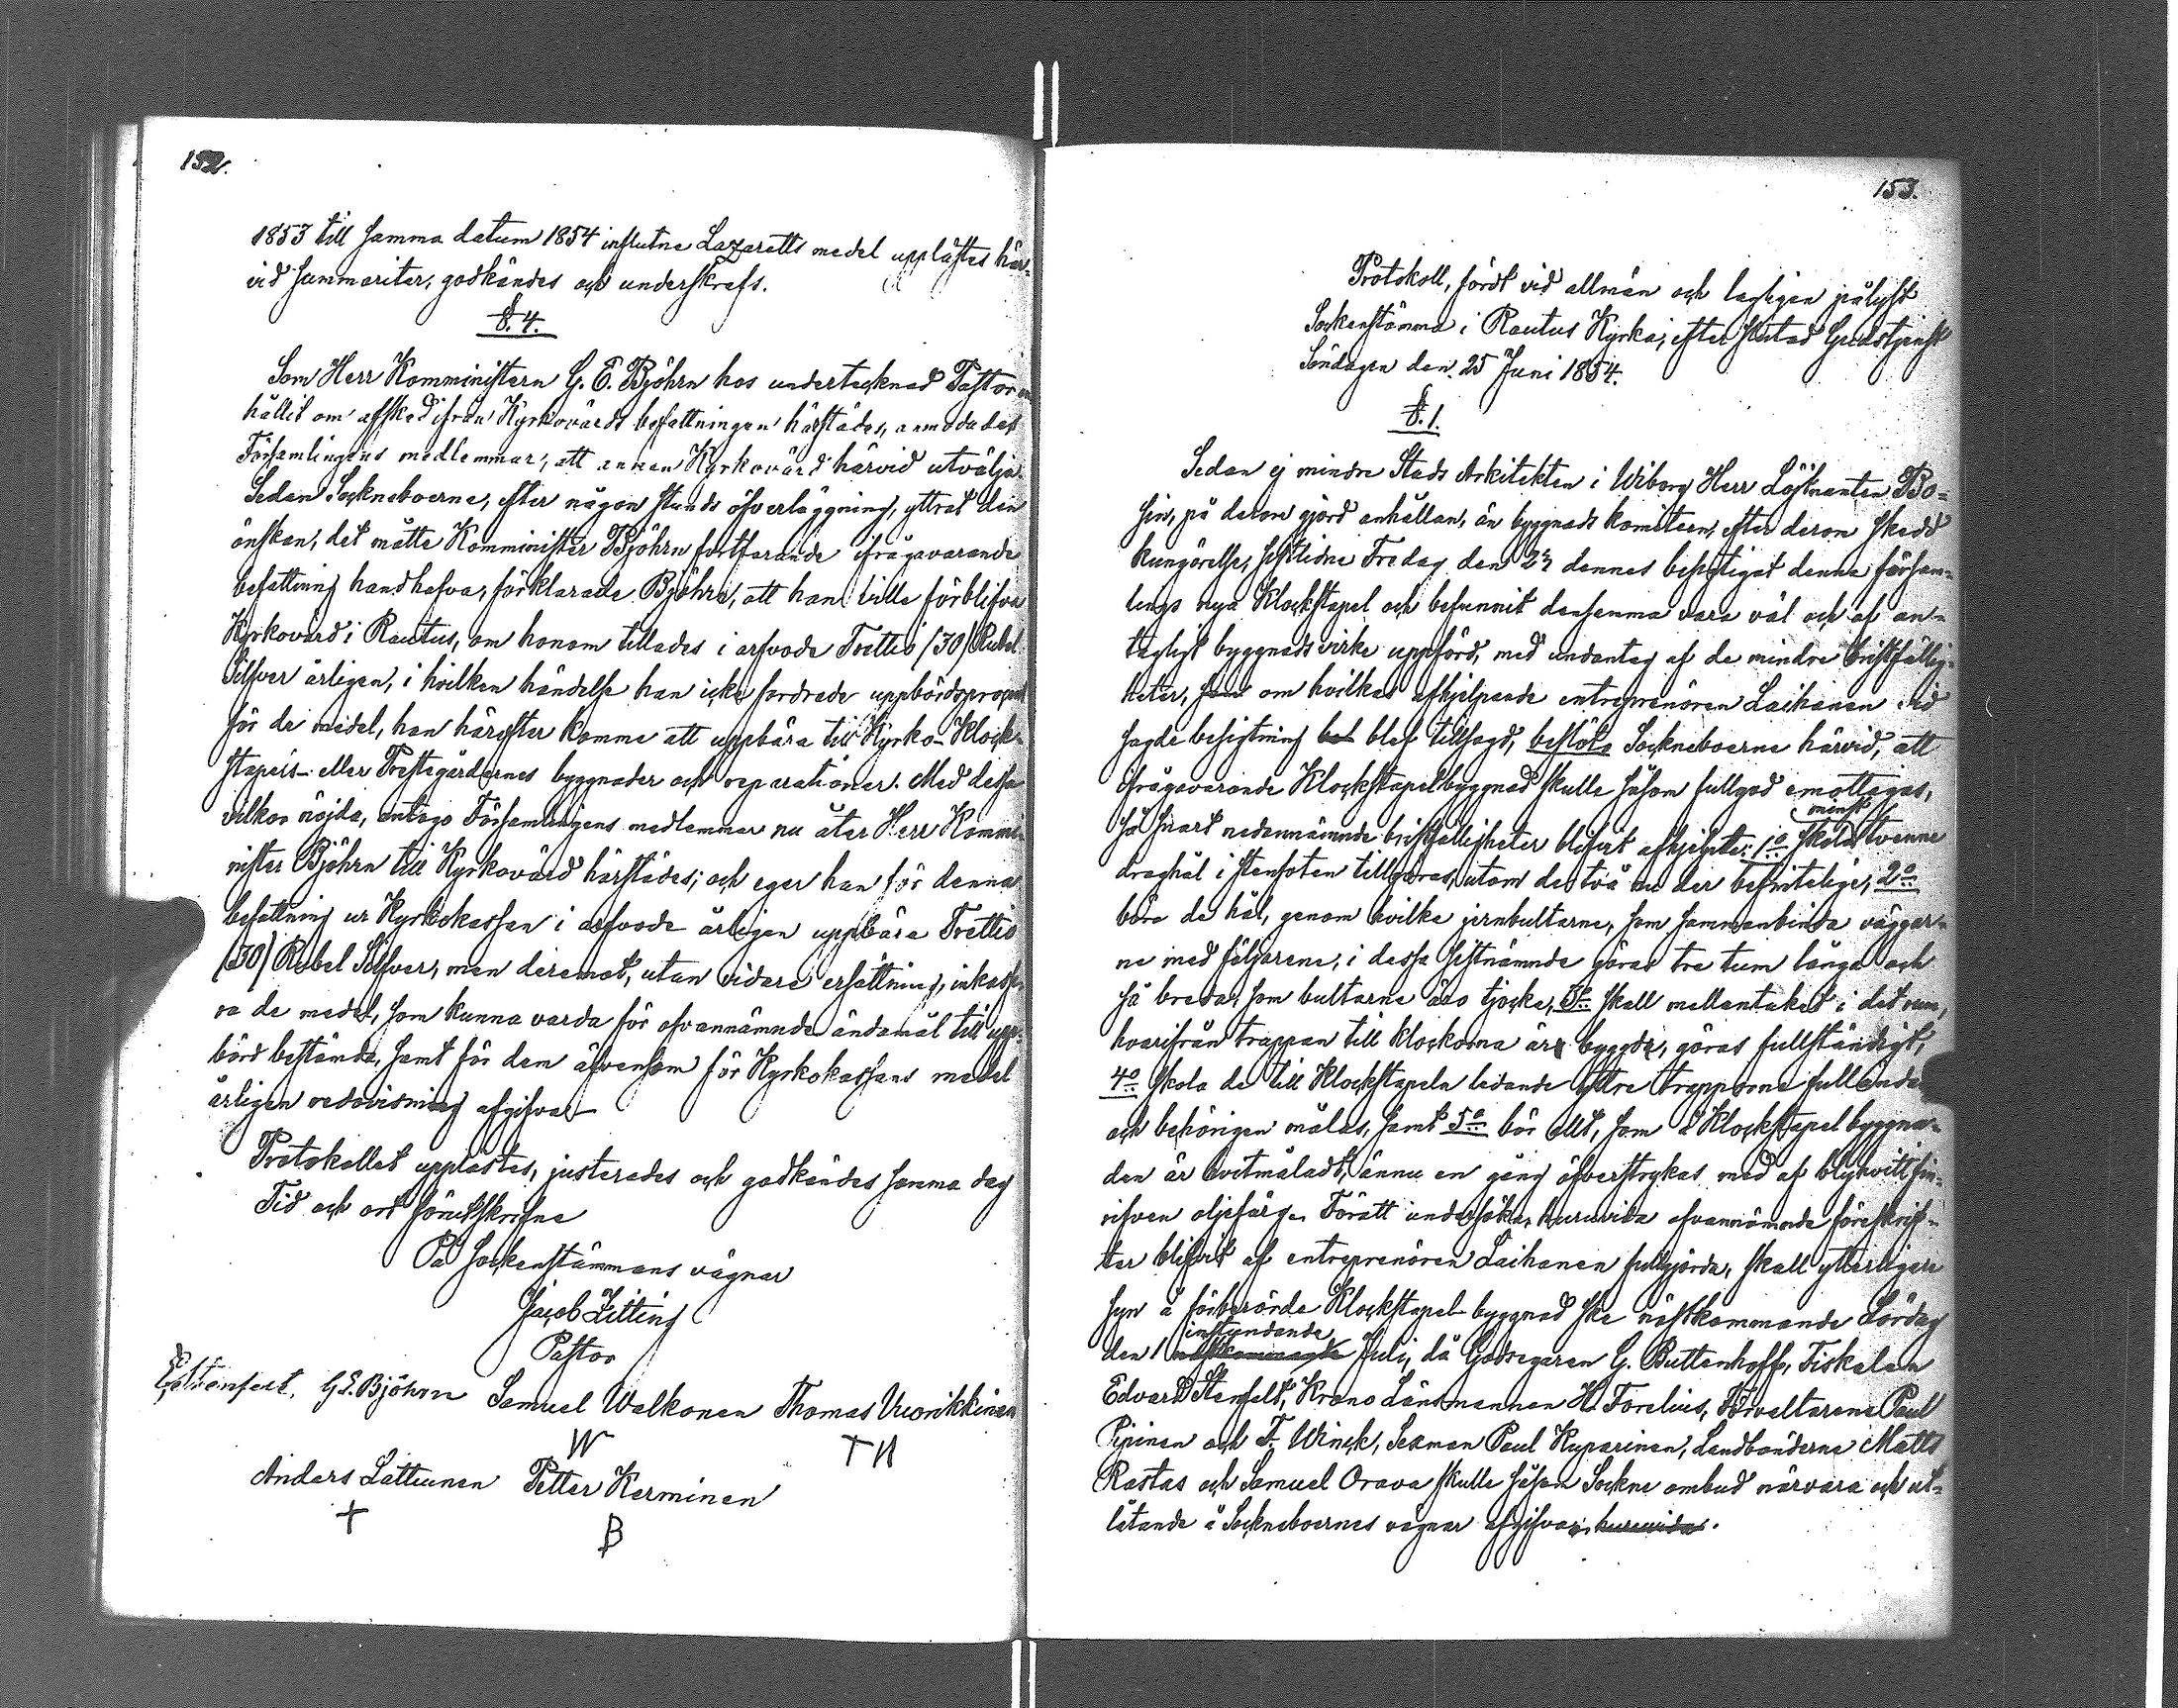 152.
1853 till samma datum 1854 influtne Lazaretts medel upplästes här-
vid summariter, godkändes och underskrefs.
§. 4.
Som Herr Komministern G. E. Björhn hos undertecknad Pastor an-
hållit om afsked ifrån Kyrkovärds befattningen härstädes, anmodades
Församlingens medlemmar, att annan Kyrkovärd härvid utvälja.
Sedan Sockneboerne, efter någon stunds öfverläggning, yttrat den
önskan, det måtte Komminister Björhn fortfarande ifrågavarande
befattning handhafva, förklarade Björhn, att han ville förblifva
Kyrkovärd i Rautus, om honom tillades i arfvode Trettio (30) Rubel
Silfver årligen, i hvilken händelse han icke fordrade uppbördsprocent
för de medel, han härefter komme att uppbära till Kyrko- Klock-
stapels- eller Prestegårdarnes byggnader och reparationer. Med dessa
vilkor nöjda, antogo Församlingens medlemmar nu åter Herr Kommi-
nister Björhn till Kyrkovärd härstädes; och eger han för denna
befattning ur Kyrkokassan i arfvode årligen uppbära Trettio
(30) Rubel Silfver, men deremot, utan vidare ersättning, inkasse-
ra de medel, som kunna varda för ofvannämnde ändamål till upp-
börd bestämda, samt för dem äfvensom för Kyrkokassans medel
årligen redovisning afgifva.
Protokollet upplästes, justerades och godkändes samma dag
Tid och ort förutskrifne
På Sockenstämmans vägnar
Jacob Zitting
Pastor
G. E. Björhn Samuel Walkonen Thomas Vuorikkinen
W TH
Anders Lattunen Petter Kerminen
+ B
153.
Protokoll, fördt vid allmän och lagligen pålyst
Sockenstämma i Rautus Kyrka, efter slutad Gudstjenst
Söndagen den 25 Juni 1854.
§. 1.
Sedan ej mindre Stads Arkitekten i Wiborg Herr Löjtnanten Bo-
sin, på derom gjord anhållan, än byggnads komiteen, efter derom skedd
kungörelse, sistlidne Fredag den 23 dennes besigtigat denna försam-
lings nya Klockstapel och befunnit densamma vara väl och af an-
tagligt byggnadsvirke uppförd, med undantag af de mindre bristfällig-
heter, som om hvilkas afhjelpande entreprenören Laihanen vid
sagde besigtning bel blef tillsagd, beslöto Sockneboerne härvid, att
ifrågavarande Klockstapelbyggnad skulle såsom fullgod emottagas,
minst
så snart nedannämnde bristfälligheter blifvit afhjelpte: 1º skola tvenne
draghål i stenfoten tillgöras, utom de två nu der befintelige, 2º
böra de hål, genom hvilka jernbultarne, som sammanbinda väggar-
ne med följarene, i dessa sistnämnde göras tre tum långa och
så breda, som bultarne äro tjocke, 3º skall mellantaket i det rum,
hvarifrån trappan till klockorna är byggd, göras fullständigt,
4º skola de till Klockstapeln ledande yttre trapporna fulländas
och behörigen målas, samt 5º bör allt, som å Klockstapel byggna-
den är hvitmåladt, ännu en gång öfverstrykas med af blyhvitt fin-
rifven oljefärg. Föratt undersöka, huruvida ofvannämnde föreskrif-
ter blifvit af entreprenören Laihanen fullgjorda, skall ytterligare
syn å förberörde Klockstapel-byggnad ske nästkommande Lördag
instundande
den 1 nästkommande Juli, då Godsegaren G. Buttenhoff, Fiskalen
Edvard Stenfelt, Krono Länsmannen H. Forelius, Förvaltarene Paul
Pipinen och F. Winck, Sexman Paul Kuparinen, Landbönderne Matts
Rastas och Samuel Orava skulle såsom Sockne ombud närvara och ut-
låtande å Sockneboernes vägnar afgifva, huruvida.